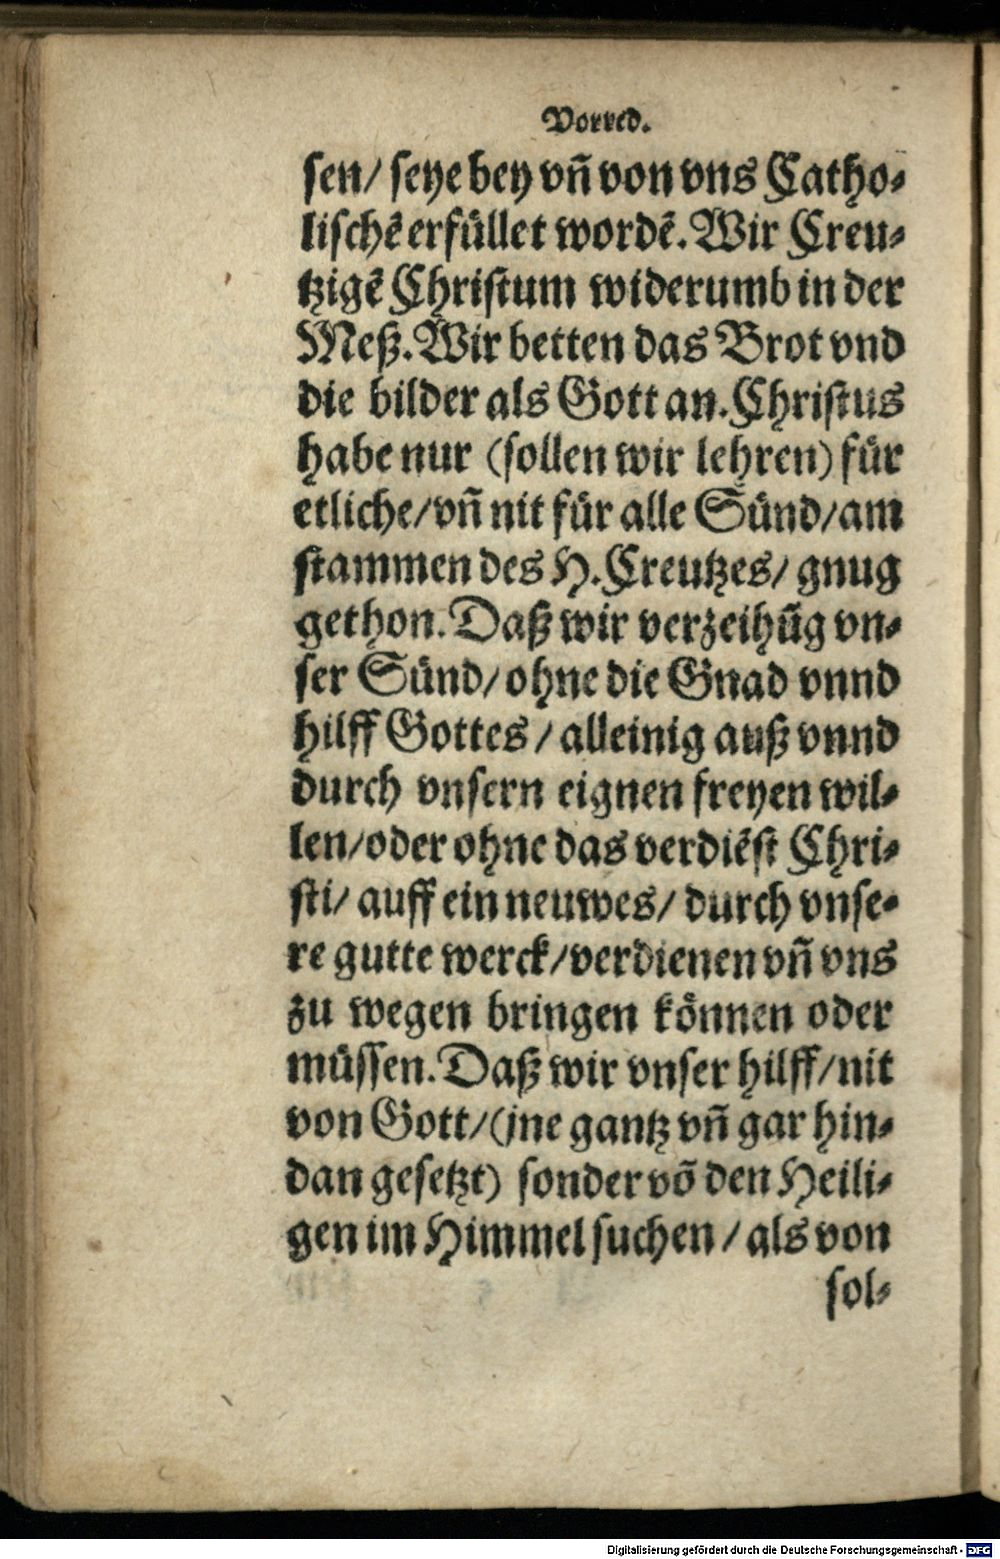 Vorred.
sen/ seye bey vn̄ von vns Catho-
lischē erfüllet wordē. Wir Creu-
tzigē Christum widerumb in der
Meß. Wir betten das Brot vnd
die bilder als Gott an. Christus
habe nur (sollen wir lehren) für
etliche/ vn̄ nit für alle Sünd/ am
stammen des H. Creutzes/ gnug
gethon. Daß wir verzeihūg vn-
ser Sünd/ ohne die Gnad vnnd
hilff Gottes / alleinig auß vnnd
durch vnsern eignen freyen wil-
len/ oder ohne das verdiēst Chri-
sti/ auff ein neuwes/ durch vnse-
re gutte werck/ verdienen vn̄ vns
zu wegen bringen können oder
müssen. Daß wir vnser hilff/ nit
von Gott/ (jne gantz vn̄ gar hin-
dan gesetzt) sonder vō den Heili-
gen im Himmel suchen / als von
sol-
Digitalisierung gefördert durch die Deutsche Forschungsgemeinschaft - DFG